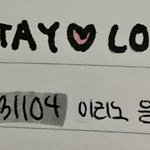 TAY♥LO
31104 이리노